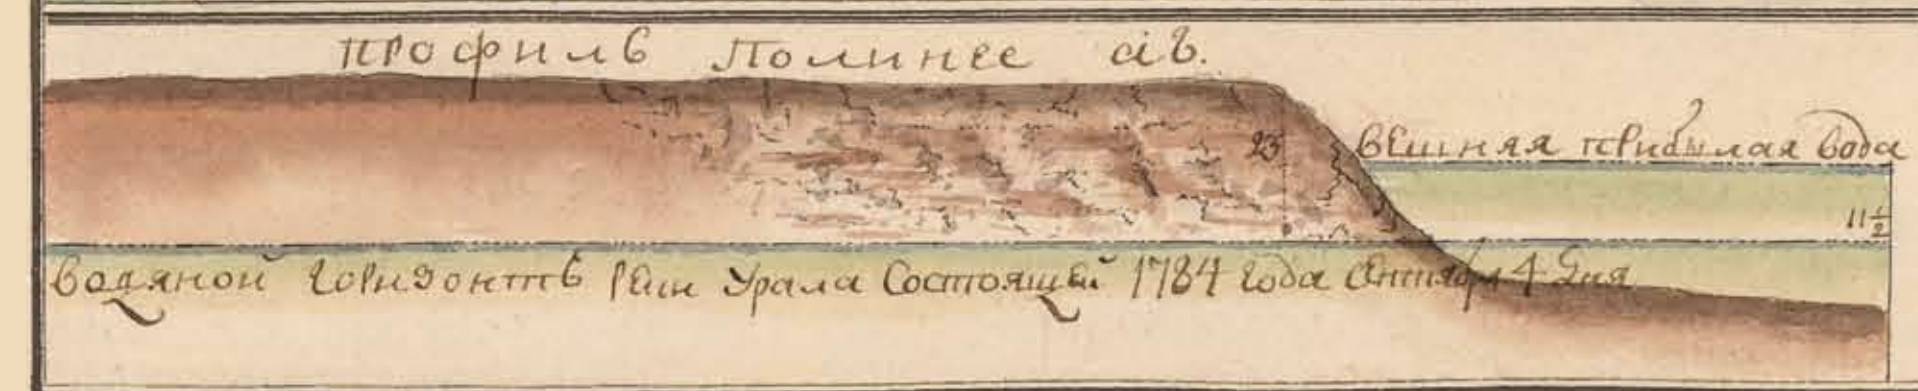 профиль полинее ав.
23
вешняя прибылая вода
11 1/2
водяной горизонтъ реки Урала состоящей 1784 года сентября 4 дня